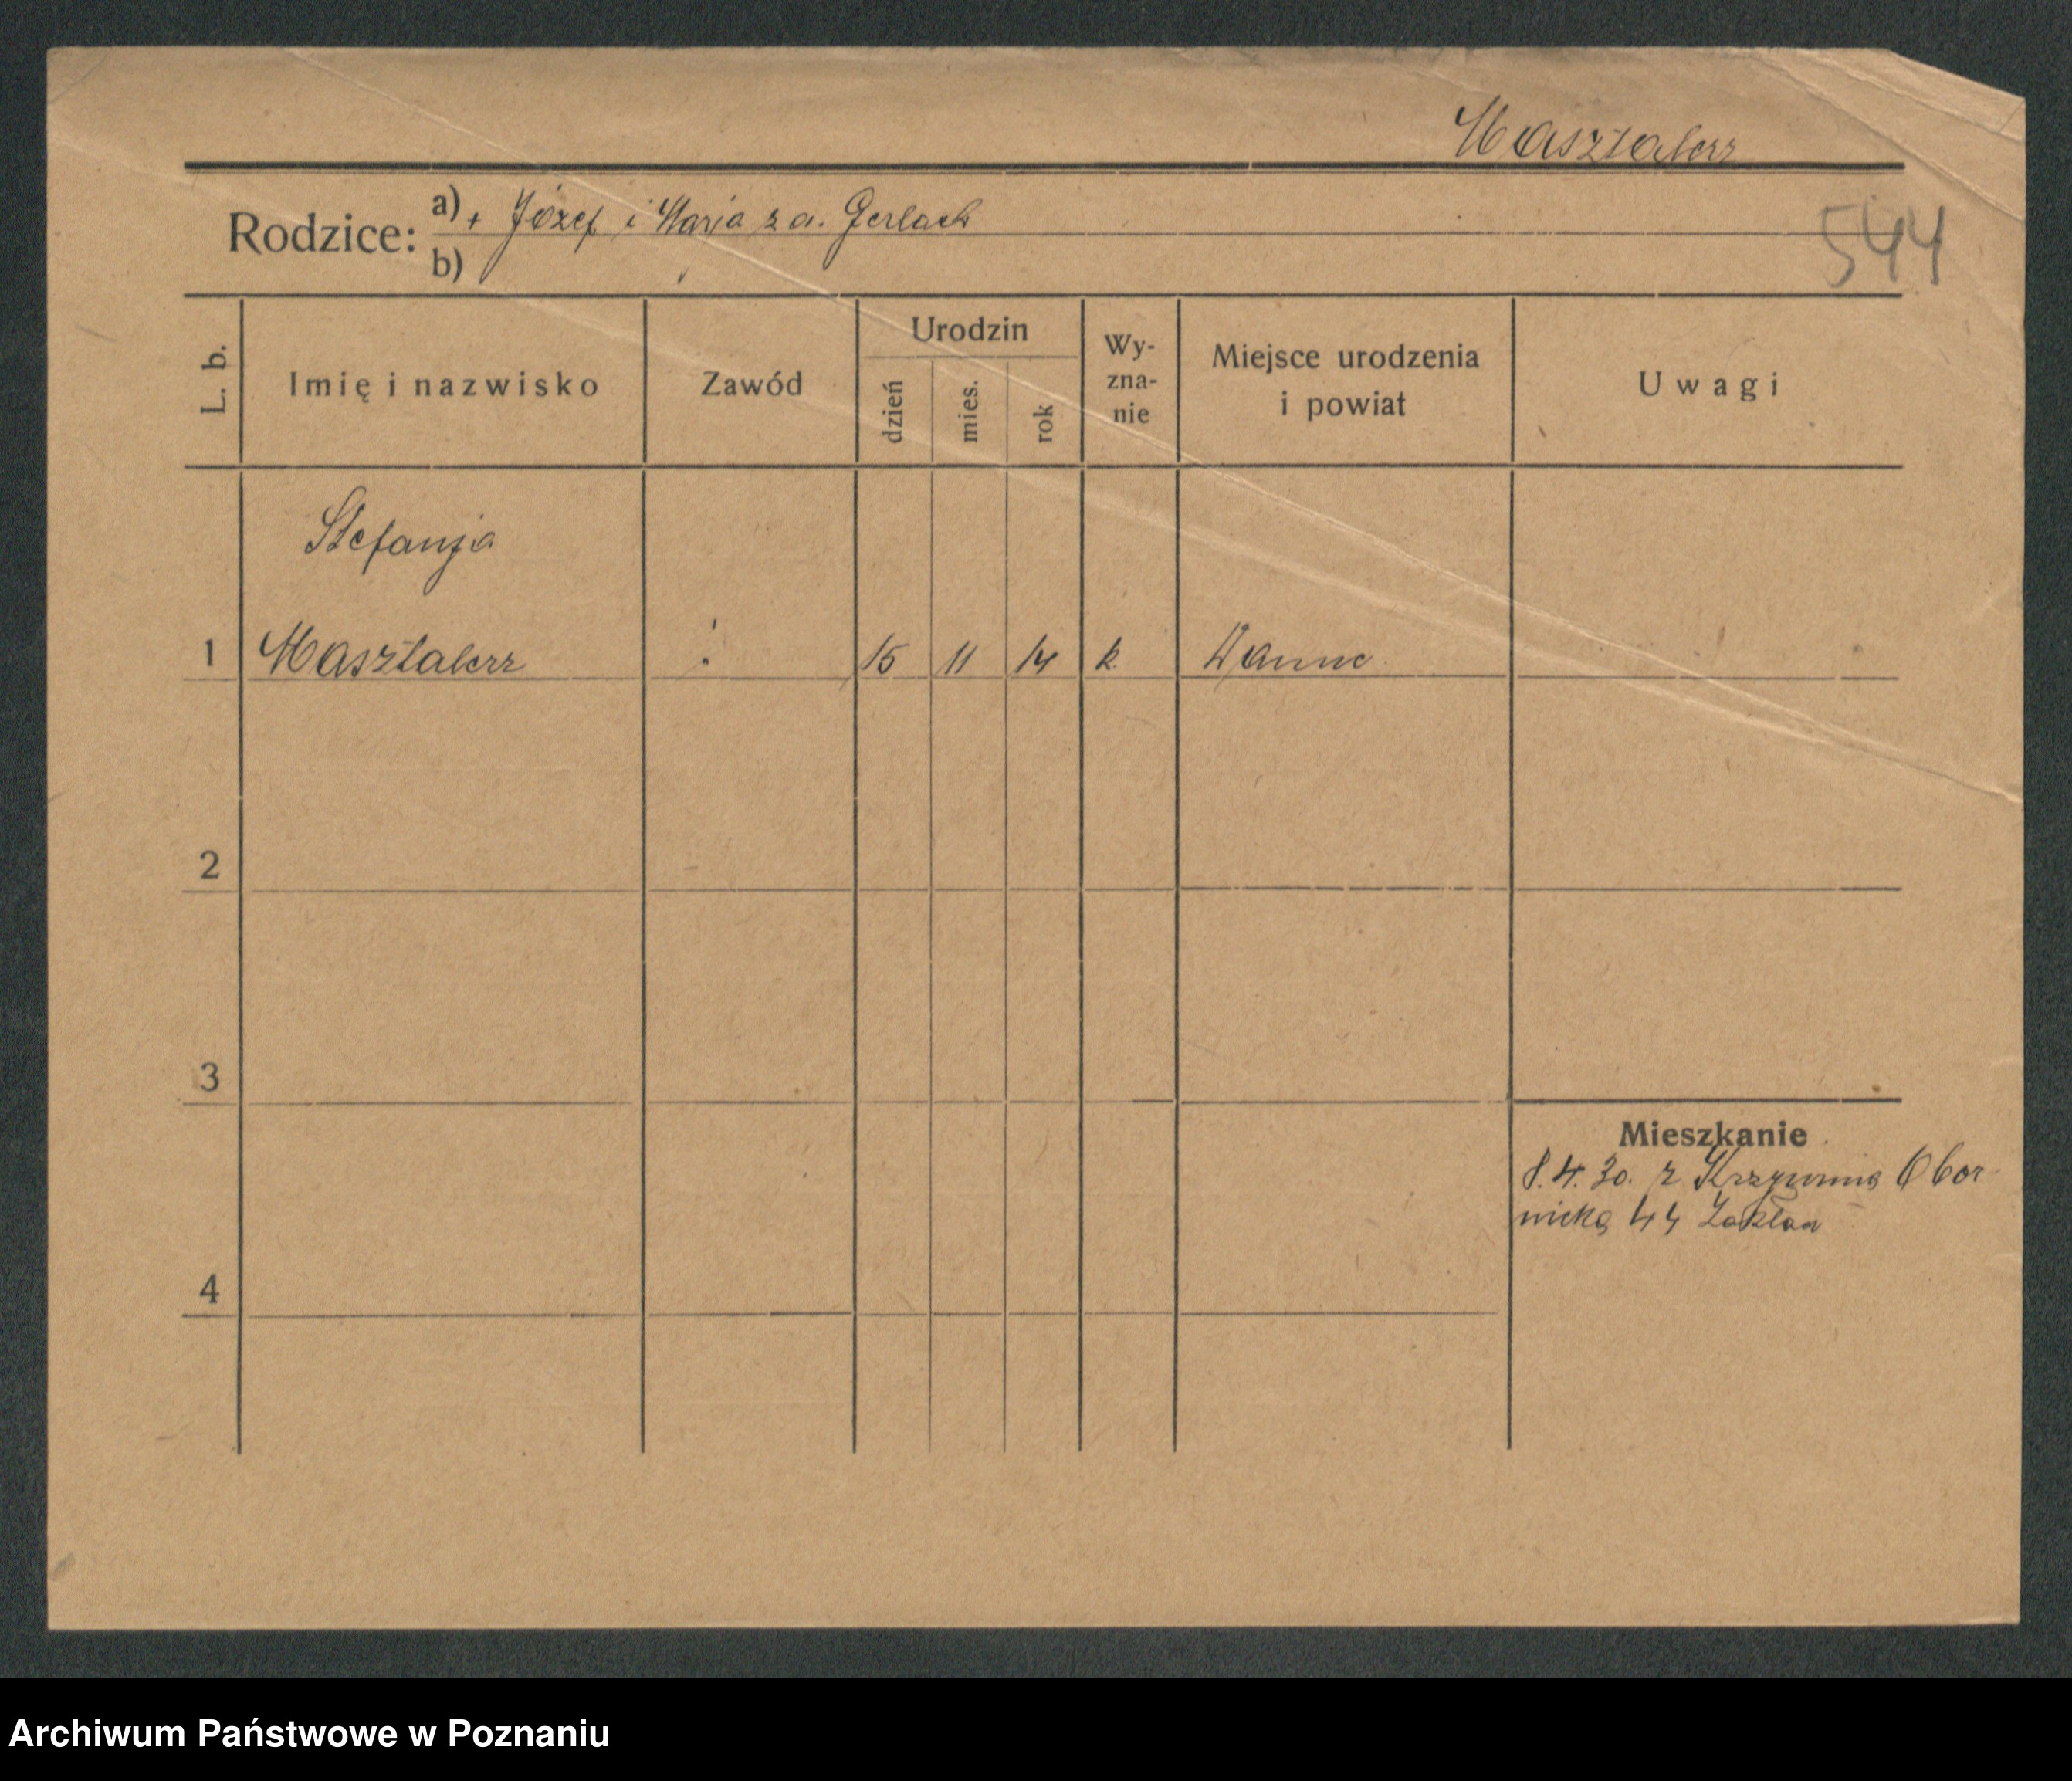 Masztalerz
Rodzice: a) + Józef i Maria z d. Gerlach
b)
544
L. b.
Imię i nazwisko
Zawód
Urodzin
dzień
mies.
rok
Wy-
zna-
nie
Miejsce urodzenia
i powiat
Uwagi
Stefanja
1 Masztalerz 15 11 14 k. Wanne
2
3
Mieszkanie
8.4.30. z Obor
nicka 44 Zakład
4
Archiwum Państwowe w Poznaniu